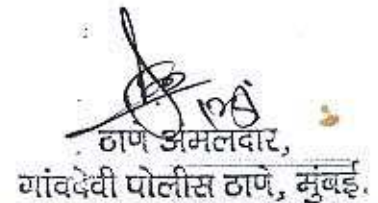 ठाणे अमलदार,
गांवदेवी पोलीस ठाणे, मुंबई.